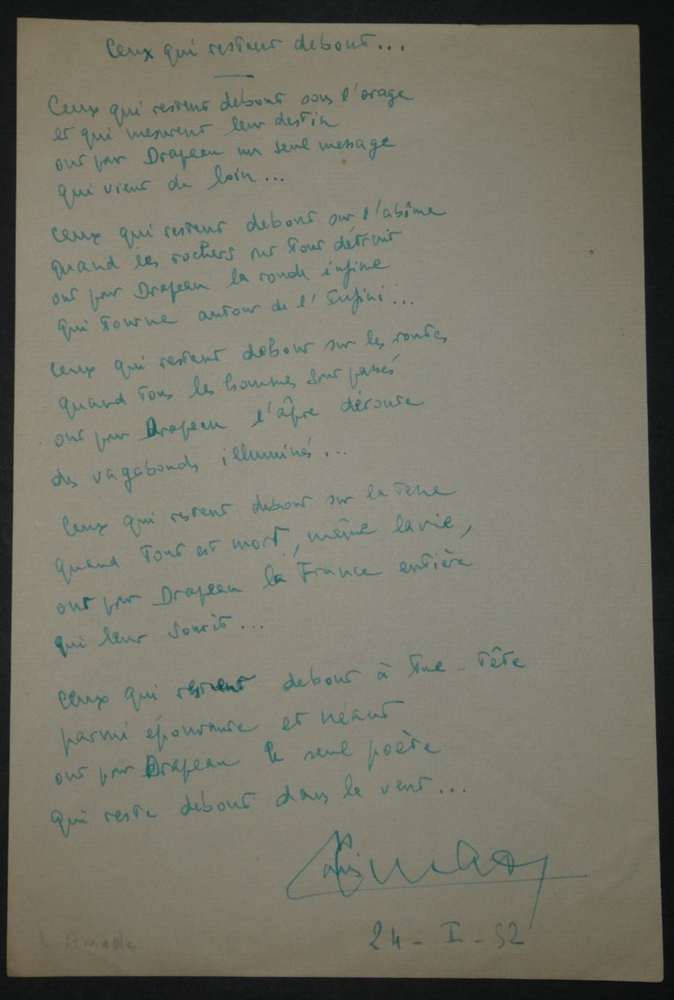 Ceux qui restent debout...
Ceux qui restent debout sous l'orage
et qui mesurent leur destin
ont pour Drapeau un seul message
qui vient de loin...
Ceux qui restent debout sur l'abîme
quand les rochers ont tout détruit
ont pour Drapeau la ronde infime
qui tourne autour de l'Infini...
Ceux qui restent debout sur les routes
quand tous les hommes sont passés
ont pour Drapeau l'âpre déroute
des vagabonds illuminés...
Ceux qui restent debout sur la terre
quand tout est mort, même la vie,
ont pour Drapeau la France entière
qui leur sourit...
Ceux qui restent debout à tue-tête
parmi épouvante et néant
ont pour Drapeau le seul poète
qui reste debout dans le vent...
Louis Amade
24-I-52
L Amade